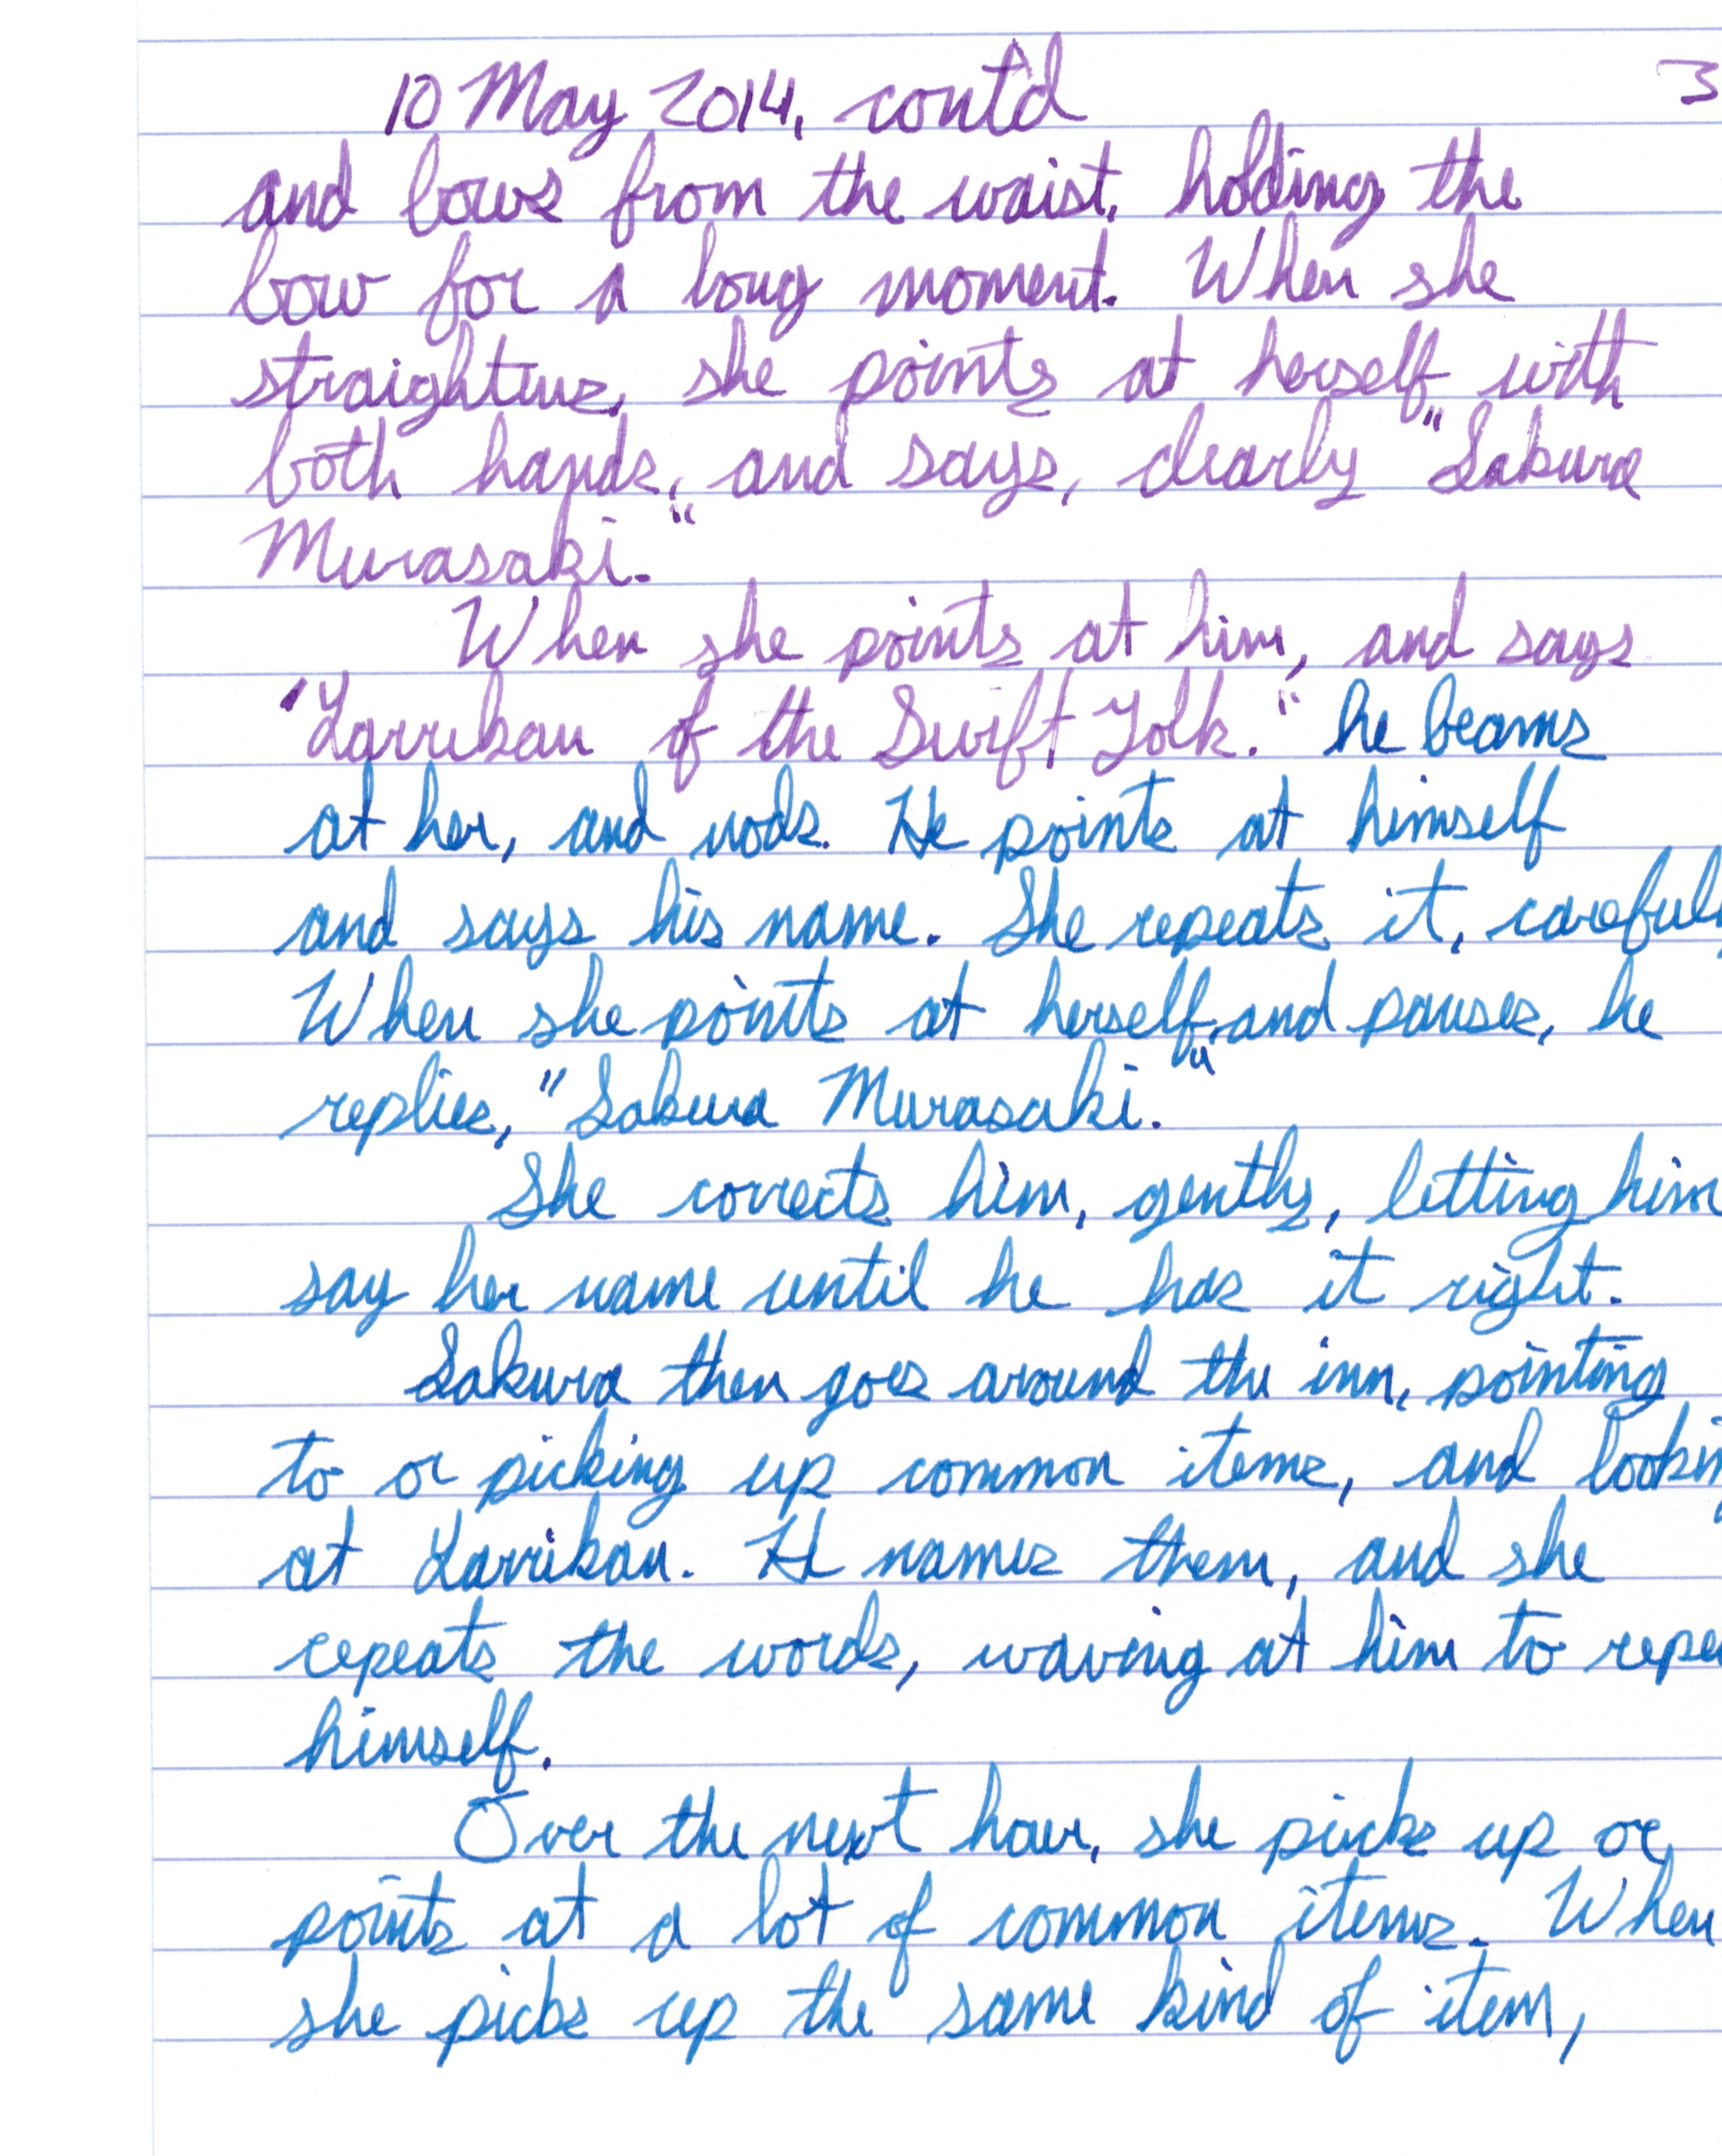 10 May 2014, cont'd 3
and bows from the waist, holding the
bow for a long moment. When she
straightens, she points at herself with
both hands, and says, clearly "Sakura
Murasaki."
When she points at him, and says
"Larrikan of the Swift Folk." he beams
at her, and nods. He points at himself
and says his name. She repeats it, carefully
When she points at herself, and pauses, he
replies, "Sakura Murasaki."
She corrects him, gently, letting him
say her name until he has it right.
Sakura then goes around the inn, pointing
to or picking up common items, and looking
at Larrikan. He names them, and she
repeats the words, waving at him to repe
himself.
Over the next hour, she picks up or
points at a lot of common items. When
she picks up the same kind of item,